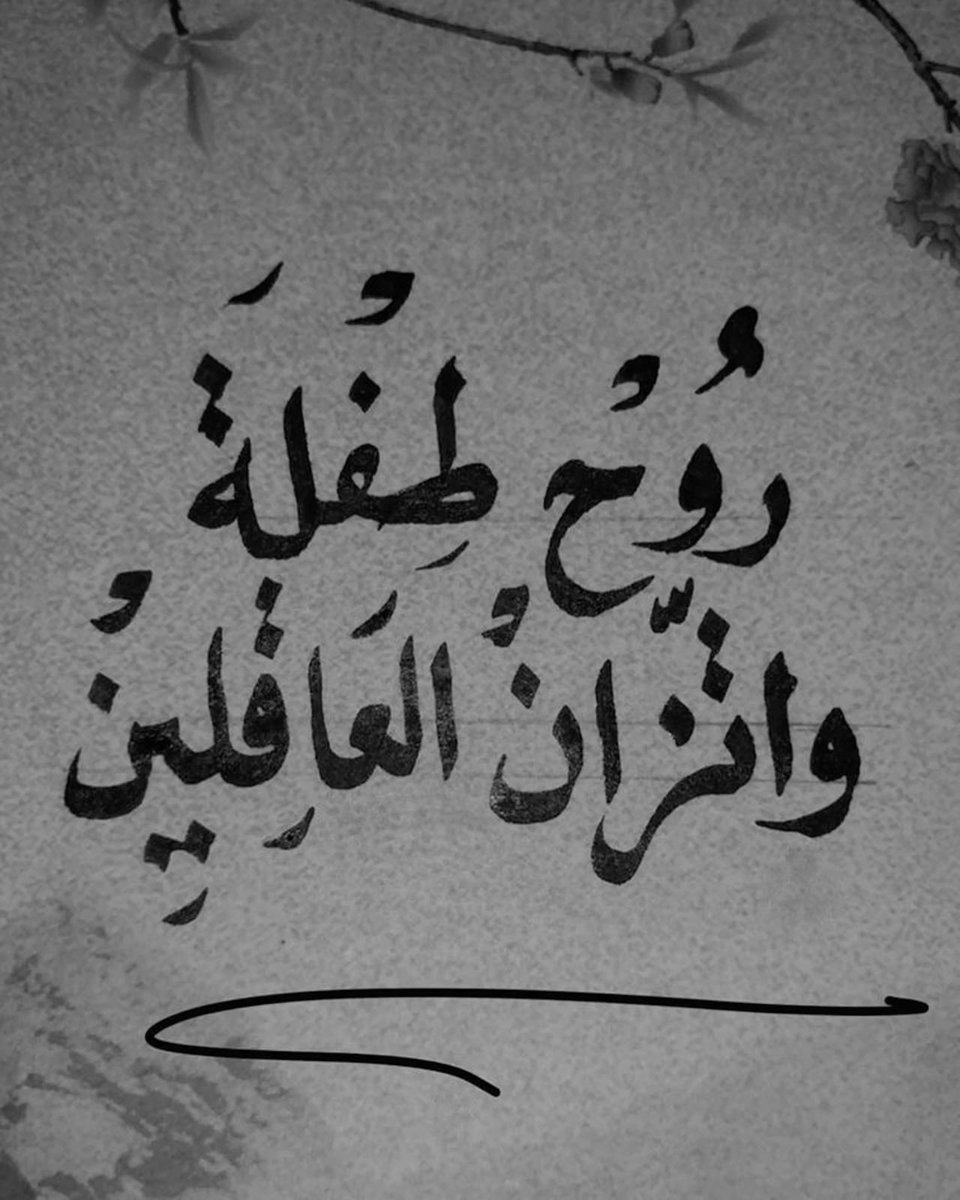 رُوْح طِفْلَة
واتّزانْ العَاقِلِينْ